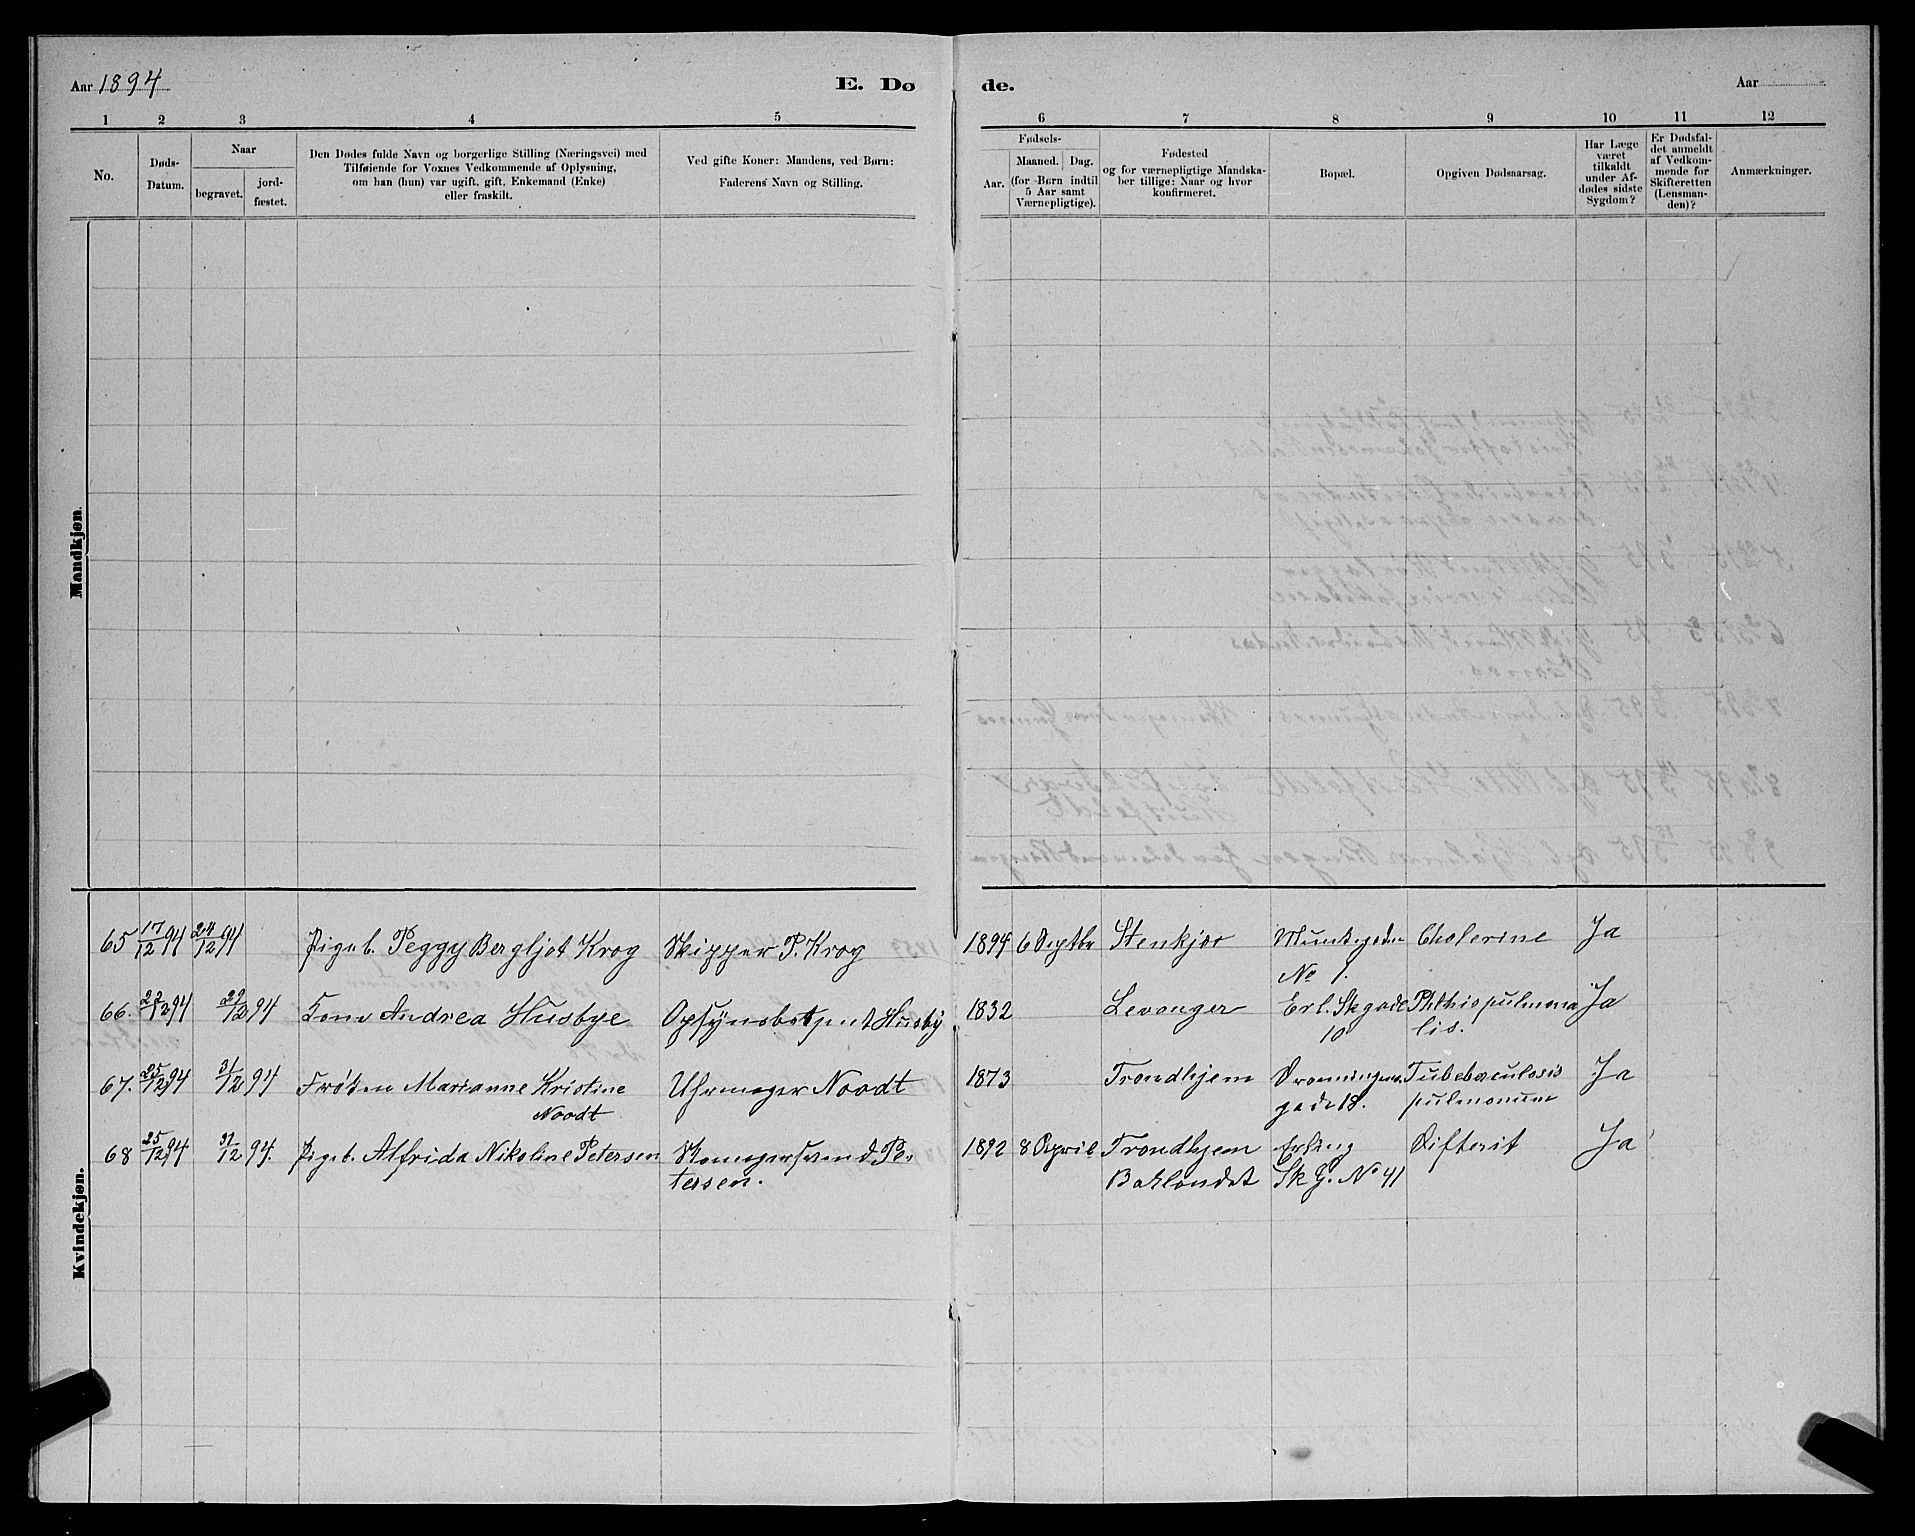 Aar 1894 E. Dø de. Aar
1 2 3 4 5 6 7 8 9 10 11 12
No.
Døds-
Datum.
Naar
begravet.
jord-
fæstet.
Den Dødes fulde Navn og borgerlige Stilling (Næringsvei) med
Tilføiende for Voxnes Vedkommende af Oplysning,
om han (hun) var ugift, gift, Enkemand (Enke)
eller fraskilt.
Ved gifte Koner: Mandens, ved Børn:
Faderens Navn og Stilling.
Fødsels-
Aar.
Maaned. Dag.
(for Børn indtil
5 Aar samt
Værnepligtige).
Fødested
og for værnepligtige Mandska-
ber tillige: Naar og hvor
konfirmeret.
Bopæl.
Opgiven Dødsaarsag.
Har Læge
været
tilkaldt
under Af-
dødes sidste
Sygdom?
Er Dødsfal-
det anmeldt
af Vedkom-
mende for
Skifteretten
(Lensman-
den)?
Anmærkninger.
Mandkjøn.
Kvindekjøn.
65 17/12 94 24/12 94 Pigeb. Peggy Bergljot Krog Skipper P. Krog 1894 6 Septbr Stenkjær Munkegaden Cholerine Ja
No 1.
66. 22/12 94 29/12 94 Kone Andrea Husbye Opsynsbetjent Husby 1832 Levanger Erl. Skgade Phthis pulmona Ja
10 lis.
67. 25/12 94 31/12 94 Frøken Marianne Kristine Uhrmager Noodt 1873 Trondhjem Dronningens Tubebaculosis Ja
Noodt gade 18. pulmonum
68 25/12 94 31/12 94. Pigeb. Alfrida Nikoline Petersen Skomagersvend Pe- 1892 8 April Trondhjem Erling Difterit Ja
tersen. Baklandet Sk G. No 41